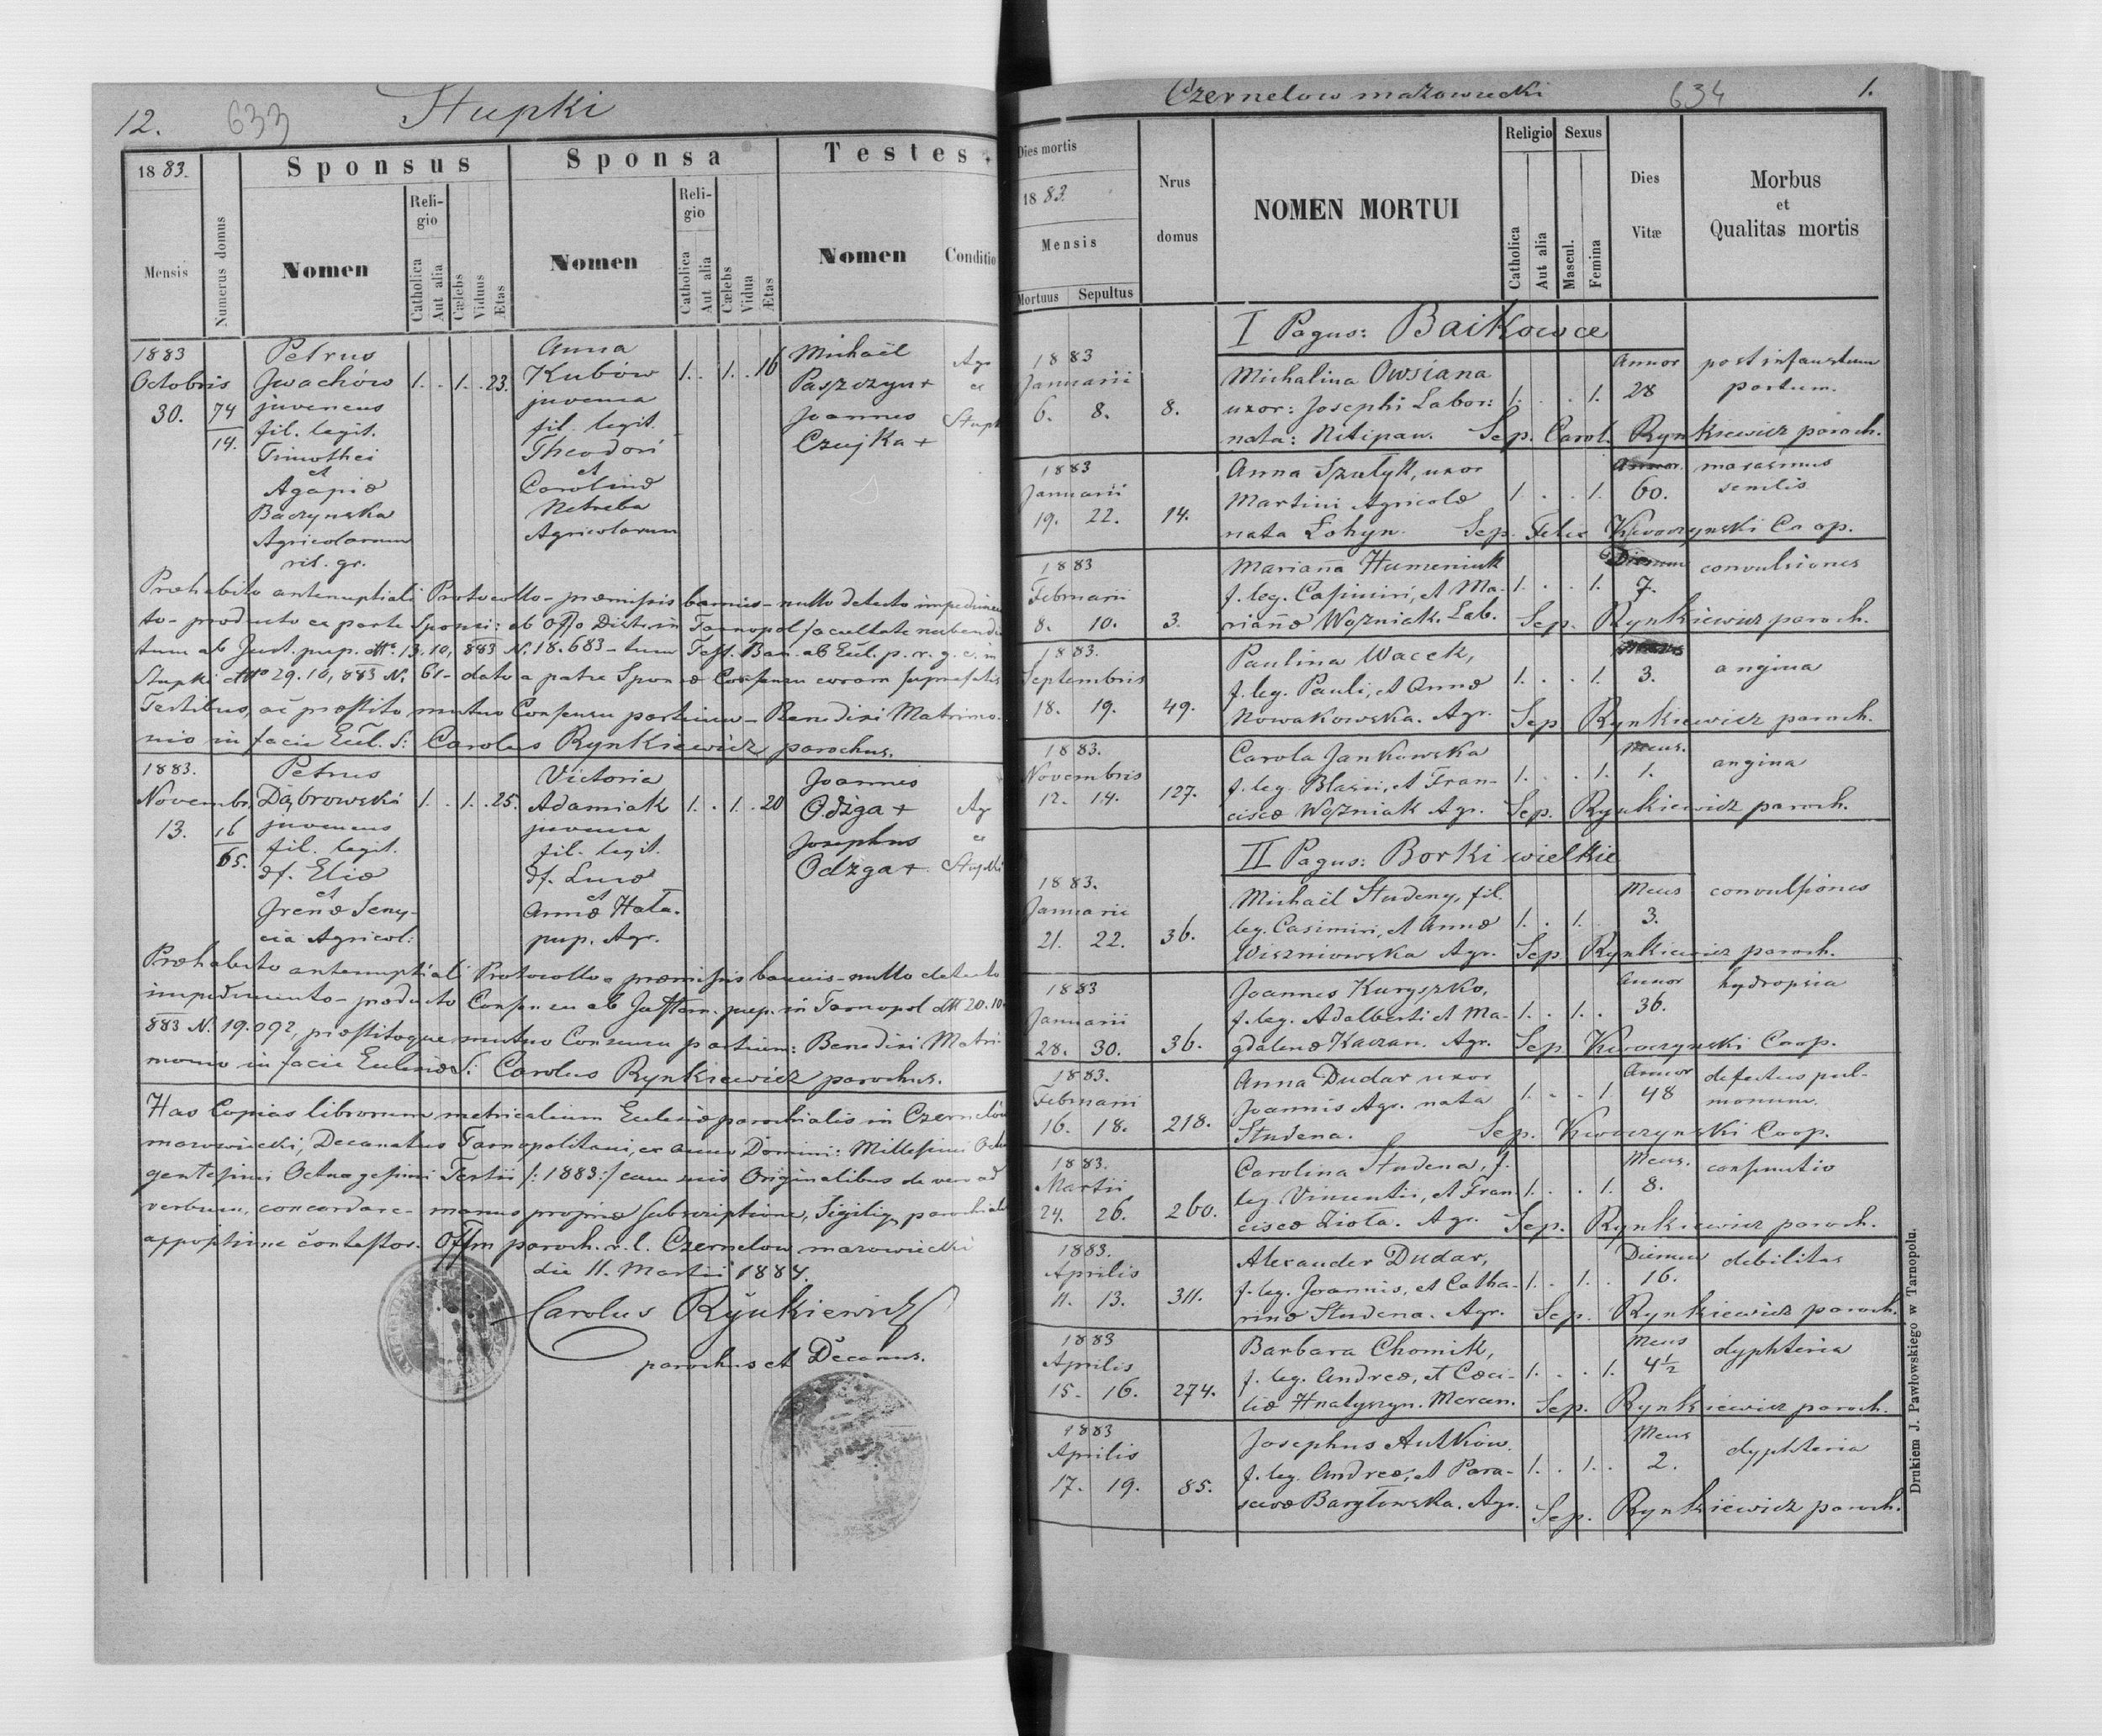 12. 633 Stupki
1883. Sponsus Sponsa Testes.
Mensis
Numerus domus
Nomen
Religio
Catholica
Aut alia
Cælebs
Viduus
Ætas
Nomen
Religio
Catholica
Aut alia
Cælebs
Vidua
Ætas
Nomen
Conditio
1883
Octobris
30.
74
14.
Petrus
Jwachów
juvencus
fil. legit.
Timothei
et
Agapiæ
Baczynska
Agricolarum
rit. gr.
1. . 1. . 23.
Anna
Kubów
juvenca
fil. legit.
Theodori
et
Carolinæ
Netreba
Agricolarum
1. . 1. . 16
Michaël
Paszczyn +
Joannes
Czujka +
Agr
Præhabito antenuptiali Protocollo - præmissis bannis - nullo detecto
to - producto ex parte Sponsi: ab Offo Distr. in Tarnopol facultate nubendi
tum ab Just. pup. dtto 13, 10, 883 N. 18.683 - tum Test. Ban. ab Eccl. p. r. g. c. in
Stupki dtto 29. 10, 883 N. 61 - dato a patre Sponsæ Consensu coram
Testibus, ac præstito mutuo Consensu partium - Benedixi Matrimo-
nio in facie Eccl. S: Carolus Rynkiewicz parochus.
1883.
Novembr.
13.
16
65.
Petrus
Dąbrowski
juvencus
fil. legit.
df. Eliæ
et
Jrenæ Seny-
cia Agricol:
1. . 1. . 25.
Victoria
Adamiak
juvenca
fil. legit.
df. Lucæ
et
Annæ Hała.
pup. Agr.
1. . 1. . 20
Joannes
Odzga +
Josephus
Odzga +
Ag
Præhabito antenuptiali Protocollo - præmissis bannis - nullo detecto
impedimento - producto Consensu ab pup. in Tarnopol dtt 20. 10
883 N. 19.092, præstitoque mutuo Consensu partium: Benedixi Matri-
monio in facie Ecclesiæ S: Carolus Rynkiewicz parochus.
Has Copias librorum metricalium Ecclesiæ parochialis in Czernelów
mazowiecki, Decanatus Tarnopolitani, ex anno Domini: Millesimi
gentesimi Octuagesimi Tertii /:1883:/ cum suis Originalibus de verbo ad
verbum, concordare - manus propriæ subscriptione, parochialis
appositione contestor. Offm paroch. r. l. Czernelow mazowiecki
die 11. Martii 1884.
Carolus Rynkiewicz
parochus et Decanus.
Czernelow mazowiecki 634 1.
Dies mortis
1883.
Mensis
Mortuus Sepultus
Nrus
domus
NOMEN MORTUI
Religio
Catholica
Aut alia
Sexus
Mascul.
Femina
Dies
Vitæ
Morbus
et
Qualitas mortis
I Pagus: Baikowce
1883
Januarii
6. 8. 8.
Michalina Owsiana
uxor: Josephi Labor:
nata: Netipaw.
1. . . 1.
Annor
28
post infaustum
partum.
Sep. Carol. Rynkiewicz paroch.
1883
Januarii
19. 22. 14.
Anna Szatyk, uxor
Martini Agricolæ
nata Łohyn.
1. . . 1.
Annor.
60.
marasmus
senilis
Sep. Felix Kwoczynski Coop.
1883
Februarii
8. 10. 3.
Marianna Humeniuk
f. leg. Casimiri, et Ma-
riannæ Wozniak. Lab.
1. . . 1.
Dierum
7.
convulsiones
Sep. Rynkiewicz paroch.
1883.
Septembris
18. 19. 49.
Paulina Wacek,
f. leg. Pauli, et Annæ
Nowakowska. Agr.
1. . . 1.
3.
angina
Sep. Rynkiewicz paroch.
1883.
Novembris
12. 14. 127.
Carola Jankowska
f. leg. Blasii, et Fran-
ciscæ Wozniak Agr.
1. . . 1.
Mens.
1.
angina
Sep. Rynkiewicz paroch.
II Pagus: Borki wielkie
1883.
Januarii
21. 22. 36.
Michaël Studeny, fil.
leg. Casimiri, et Annæ
Wiszniowska Agr.
1. . 1.
Mens
3.
convulsiones
Sep. Rynkiewicz paroch.
1883
Januarii
28. 30. 36.
Joannes Kuryszko,
f. leg. Adalberti et Ma-
gdalenæ Kaczan. Agr.
1. . 1. .
Annor
36.
hydropsia
Sep. Kwoczynski Coop.
1883.
Februarii
16. 18. 218.
Anna Dudar uxor
Joannis Agr. nata
Studena.
1. . . 1.
Annor
48
defectus pul-
monum.
Sep. Kwoczynski Coop.
1883.
Martii
24. 26. 260.
Carolina Studena, f.
leg. Vincentii, et Fran
ciscæ Zioła. Agr.
1. . . 1.
Mens.
8.
consumtio
Sep. Rynkiewicz paroch.
1883.
Aprilis
11. 13. 311.
Alexander Dudar,
f. leg. Joannis, et Catha-
rinæ Studena. Agr.
1. . 1. .
Dierum
16.
debilitas
Sep. Rynkiewicz paroch.
1883
Aprilis
15. 16. 274.
Barbara Chomik,
f. leg. Andreæ, et Cæci-
liæ Hnatyszyn. Mercen.
1. . . 1.
Mens
4½
dyphteria
Sep. Rynkiewicz paroch.
1883
Aprilis
17. 19. 85.
Josephus Autków.
f. leg. Andreæ, et Para-
scevæ Baryłowska. Agr.
1. . 1. .
Mens
2.
dyphteria
Sep. Rynkiewicz paroch.
Drukiem J. Pawłowskiego w Tarnopolu.